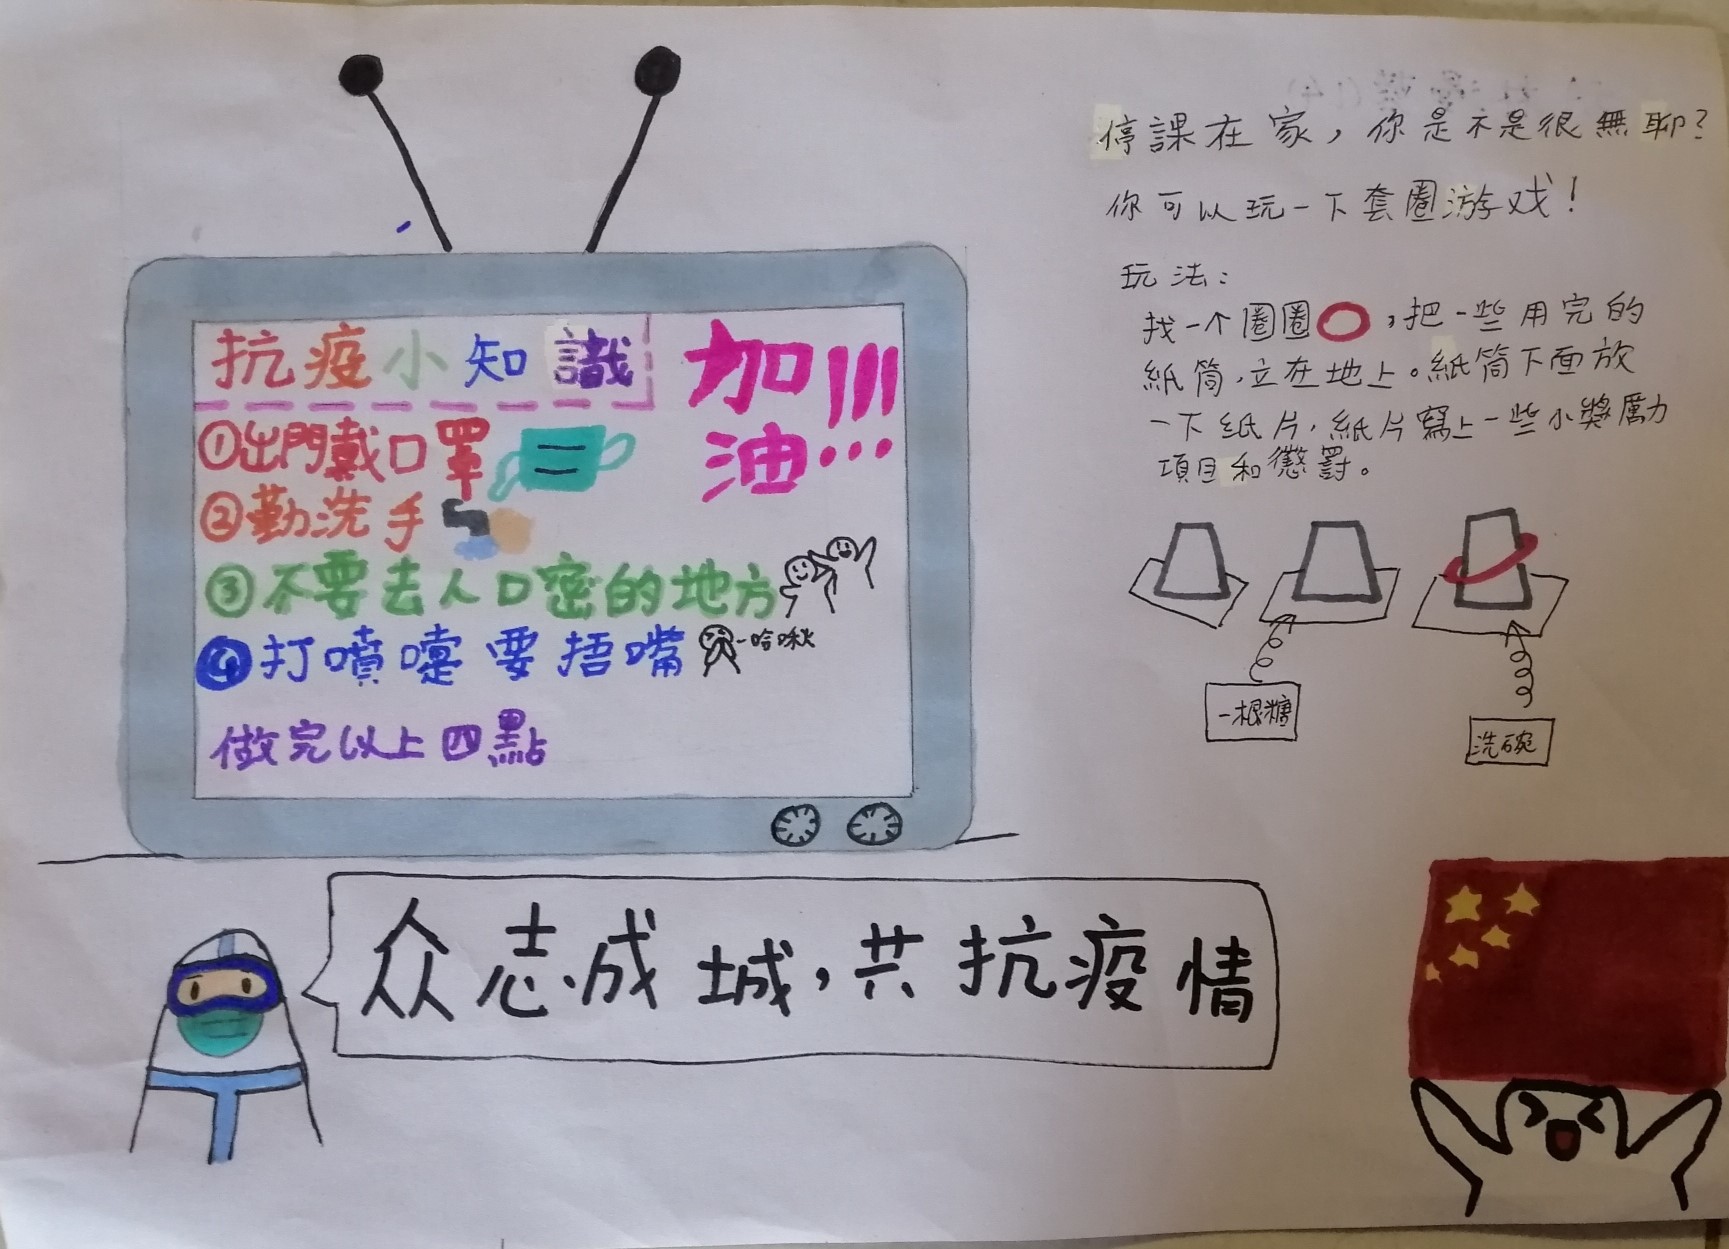 抗疫小知識
加油!!!...
①出門戴口罩
②勤洗手
③不要去人口密的地方
④打噴嚏要捂嘴
哈啾
做完以上四點
停課在家，你是不是很無聊？
你可以玩一下套圈游戏！
玩法：
找一个圈圈，把一些用完的
紙筒，立在地上。紙筒下面放
一下纸片，紙片寫上一些小獎厲力
項目和懲罰。
一根糖
洗碗
众志成城，共抗疫情